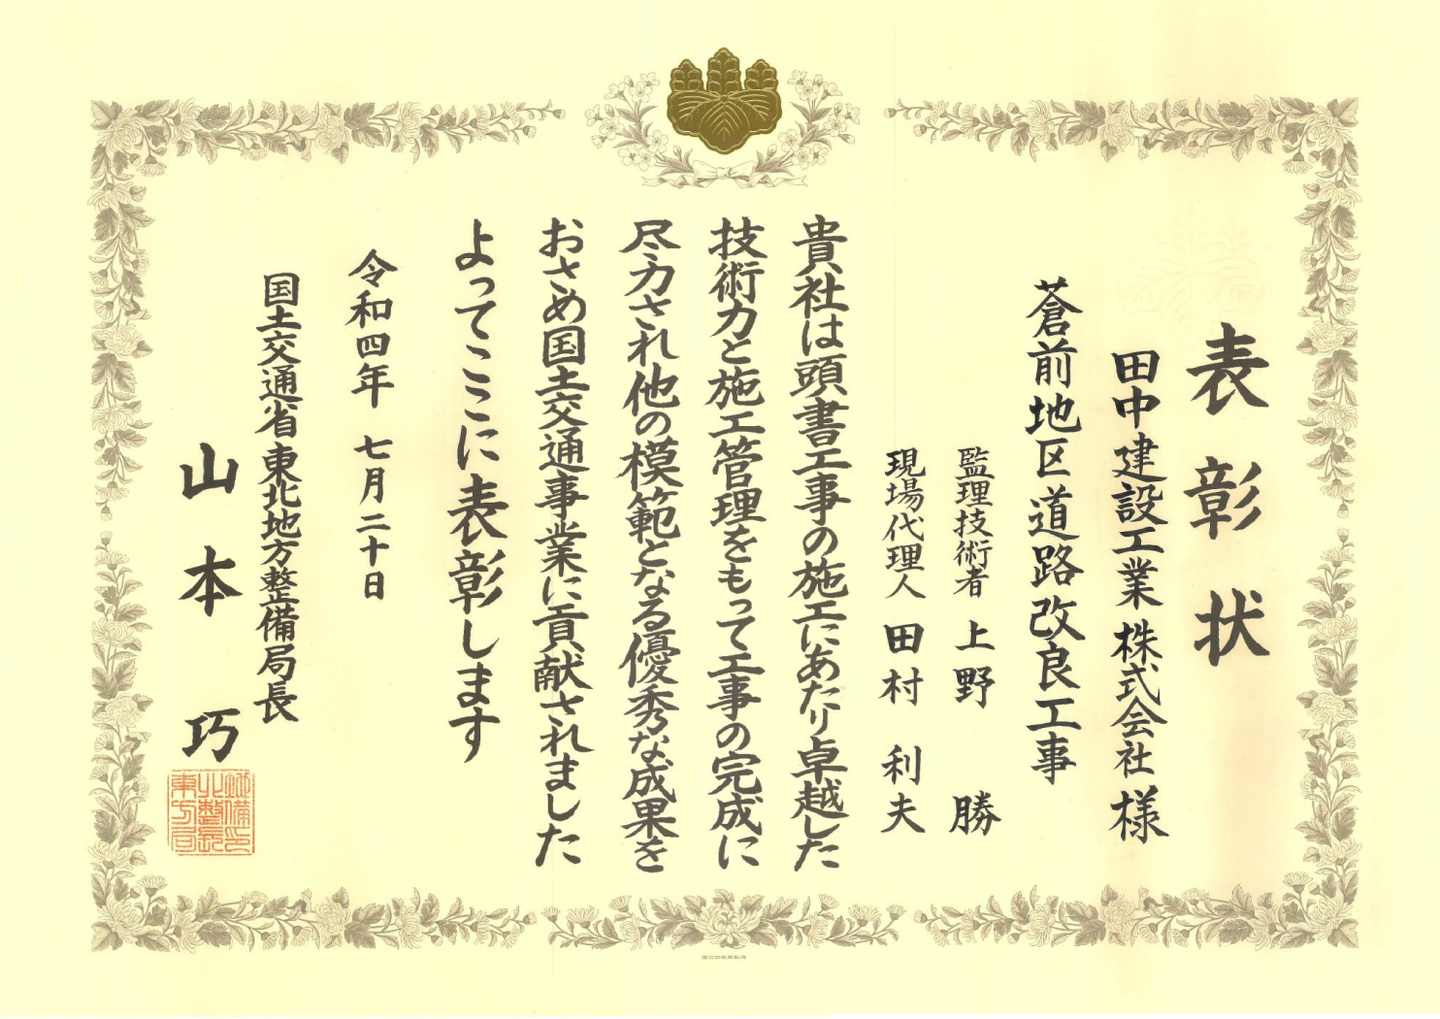 表彰状
田中建設工業株式会社様
蒼前地区道路改良工事
監理技術者 上野 勝
現場代理人 田村 利夫
貴社は頭書工事の施工にあたり卓越した
技術力と施工管理をもって工事の完成に
尽力され他の模範となる優秀な成果を
おさめ国土交通事業に貢献されました
よってここに表彰します
令和四年 七月二十日
国土交通省東北地方整備局長
山本 巧